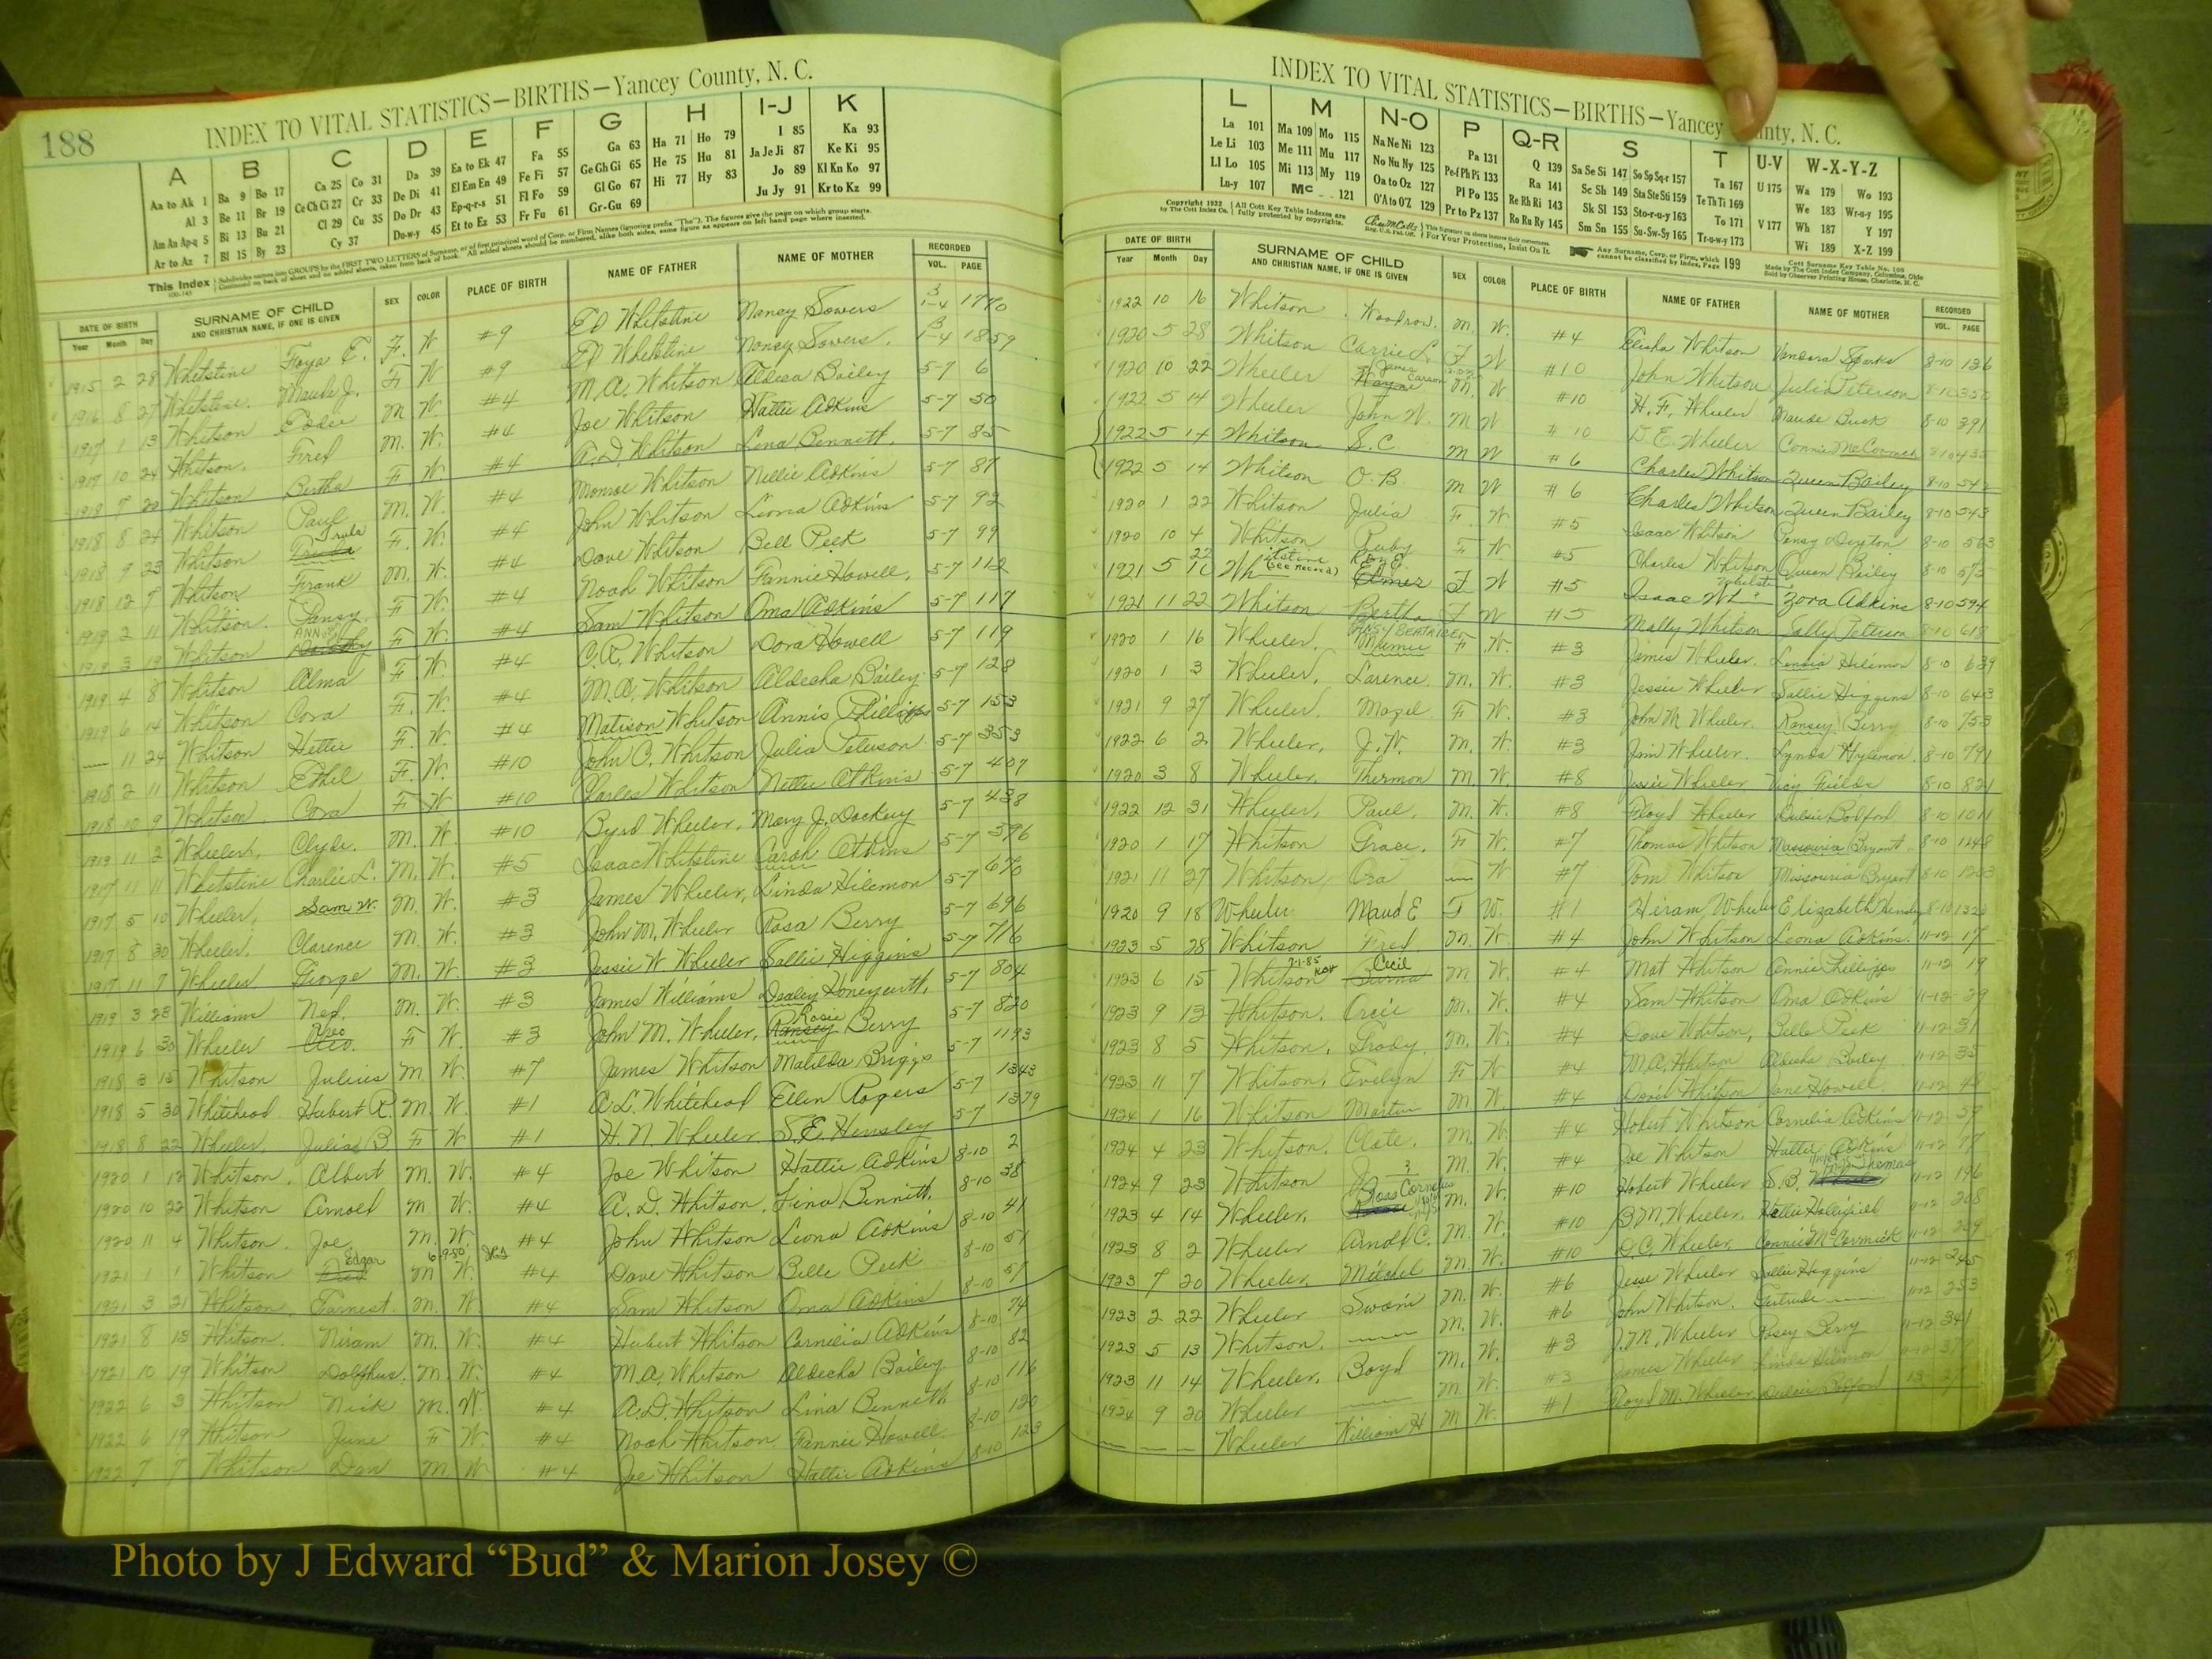 188
INDEX TO VITAL STATISTICS—BIRTHS—Yancey County, N. C.
A B C D E F G H I-J K
Aa to Ak 1 Ba 9 Bo 17 Ca 25 Co 31 Da 39 Ea to Ek 47 Fa 55 Ga 63 Ha 71 Ho 79 I 85 Ka 93
Al 3 Be 11 Br 19 Ce Ch Ci 27 Cr 33 De Di 41 El Em En 49 Fe Fi 57 Ge Gh Gi 65 He 75 Hu 81 Ja Je Ji 87 Ke Ki 95
Am An Ap-q 5 Bi 13 Bu 21 Cl 29 Cu 35 Do Dr 43 Ep-q-r-s 51 Fl Fo 59 Gl Go 67 Hi 77 Hy 83 Jo 89 Kl Kn Ko 97
Ar to Az 7 Bl 15 By 23 Cy 37 Du-w-y 45 Et to Ez 53 Fr Fu 61 Gr-Gu 69 Ju Jy 91 Kr to Kz 99
This Index
DATE OF BIRTH SURNAME OF CHILD SEX COLOR PLACE OF BIRTH NAME OF FATHER NAME OF MOTHER RECORDED
Year Month Day AND CHRISTIAN NAME, IF ONE IS GIVEN VOL. PAGE
1915 2 28 Whitstine Foya E. F. W #9 Ed Whitstine Nancy Sowers 3 1-4 1770
1916 8 27 Whitstine. Maude J. F W #9 Ed Whitstine Nancy Sowers. 3 1-4 1859
1917 1 13 Whitson Edde M W. #4 M.A. Whitson Aldesa Bailey 5-7 6
1917 10 24 Whitson. Fred M. W. #4 Joe Whitson Hattie Adkins 5-7 50
1918 7 20 Whitson Bertha F W. #4 A.D. Whitson Lena Bennett. 5-7 85
1918 8 24 Whitson Paul M. W. #4 Monroe Whitson Nellie Adkins 5-7 87
1918 9 23 Whitson Trula F. W. #4 John Whitson Leona Adkins 5-7 92
1918 12 9 Whitson Frank M. W. #4 Dave Whitson Bell Peek 5-7 99
1919 2 11 Whitson. Pansy F W. #4 Noah Whitson Fannie Howell. 5-7 112
1919 3 19 Whitson ANN Dorothy F W. #4 Sam Whitson Oma Adkins 5-7 117
1919 4 8 Whitson Alma F. W. #4 C.R. Whitson Dora Howell 5-7 119
1919 6 14 Whitson Cora F. W. #4 M.A. Whitson Aldecha Bailey 5-7 128
— 11 24 Whitson Hettie F. W. #4 Matison Whitson Annis Phillips 5-7 153
1918 2 11 Whitson Ethel F. W. #10 John C. Whitson Julia Peterson 5-7 353
1918 10 9 Whitson Cora F W #10 Charles Whitson Nettie Atkins 5-7 407
1919 11 2 Wheeler. Clyde. M. W. #10 Byrd Wheeler. Mary J. Dockery 5-7 438
1917 11 11 Whitstine Charlie L. M. W. #5 Isaac Whitstine Carah Atkins 5-7 596
1917 5 10 Wheeler. Sam W. M. W. #3 James Wheeler, Linda Hilemon 5-7 670
1917 8 30 Wheeler. Clarence M. W. #3 John M. Wheeler Rosa Berry 5-7 696
1917 11 7 Wheeler George M. W. #3 Jessie W Wheeler Sallie Higgins 5-7 716
1919 3 23 Williams Ned. M. W. #3 James Williams Dealey Honeycutt. 5-7 804
1919 6 30 Wheeler Cleo. F W. #3 John M. Wheeler, Rosie Ransey Berry 5-7 820
1918 3 15 Whitson Julius M W. #7 James Whitson Matilda Briggs 5-7 1193
1918 5 30 Whitehead Hubert R. M. W. #1 A.L. Whitehead Ellen Rogers 5-7 1343
1918 8 22 Wheeler. Julias B F W #1 H.N. Wheeler S.E. Hensley 5-7 1379
1920 1 12 Whitson. Albert M. W. #4 Joe Whitson Hattie Adkins 8-10 2
1920 10 22 Whitson Arnold M. W. #4 A.D. Whitson. Lina Bennett. 8-10 38
1920 11 4 Whitson. Joe M. W. #4 John Whitson Leona Adkins 8-10 41
1921 1 1 Whitson Edgar M W. #4 Dave Whitson Belle Peek 8-10 51
1921 3 21 Whitson. Earnest. M. W. #4 Sam Whitson Oma Adkins 8-10 57
1921 8 13 Whitson. Niram M. W. #4 Hubert Whitson Cornelia Adkins 8-10 74
1921 10 19 Whitson Dolfhus. M W. #4 M.A. Whitson Aldecha Bailey 8-10 82
1922 6 3 Whitson Nick M. W. #4 A.D. Whitson Lina Bennett 8-10 116
1922 6 19 Whitson June F W. #4 Noah Whitson. Fannie Howell. 8-10 120
1922 7 7 Whitson Dan M W #4 Joe Whitson Hattie Adkins 8-10 123
INDEX TO VITAL STATISTICS—BIRTHS—Yancey County, N. C.
L M N-O P Q-R S T U-V W-X-Y-Z
La 101 Ma 109 Mo 115 Na Ne Ni 123 Pa 131 Q 139 Sa Se Si 147 So Sp Sq-r 157 Ta 167 U 175 Wa 179 Wo 193
Le Li 103 Me 111 Mu 117 No Nu Ny 125 Pe-f Ph Pi 133 Ra 141 Sc Sh 149 Sta Ste Sti 159 Te Th Ti 169 We 183 Wr-u-y 195
Ll Lo 105 Mi 113 My 119 Oa to Oz 127 Pl Po 135 Re Rh Ri 143 Sk Sl 153 Sto-r-u-y 163 To 171 V 177 Wh 187 Y 197
Lu-y 107 Mc 121 O'A to O'Z 129 Pr to Pz 137 Ro Ru Ry 145 Sm Sn 155 Su-Sw-Sy 165 Tr-u-w-y 173 Wi 189 X-Z 199
Copyright 1932 by The Cott Index Co. All Cott Key Table Indexes are fully protected by copyrights. For Your Protection, Insist On It. Any Surname, Corp. or Firm, which cannot be classified by Index, Page 199
DATE OF BIRTH SURNAME OF CHILD SEX COLOR PLACE OF BIRTH NAME OF FATHER NAME OF MOTHER RECORDED
Year Month Day AND CHRISTIAN NAME, IF ONE IS GIVEN VOL. PAGE
1922 10 16 Whitson. Woodrow. M. W. #4 Elisha Whitson Vendora Sparks 8-10 136
1920 5 28 Whitson Carrie L. F W #10 John Whitson Julia Peterson 8-10 350
1920 10 22 Wheeler James Carson Wayne M. W #10 H.F. Wheeler Maude Buck 8-10 391
1922 5 14 Wheeler John W. M W #10 D.E. Wheeler Connie McCormick 8-10 435
1922 5 14 Whitson S.C. M W #6 Charles Whitson Queen Bailey 8-10 542
1922 5 14 Whitson O.B. M W #6 Charles Whitson Queen Bailey 8-10 543
1920 1 22 Whitson Julia F. W #5 Isaac Whitson 8-10 563
1920 10 4 Whitson Ruby F W #5 Charles Whitson Queen Bailey 8-10 573
1921 5 22 Whitstine (See Record) Elmer F W #5 Isaac Whitstine Zora Adkins 8-10 594
1921 11 22 Whitson Bertha F W #5 Molly Whitson Sally Peterson 8-10 618
1920 1 16 Wheeler. DAISY BEATRICE Mamie F W. #3 James Wheeler. Hilemon 8-10 639
1920 1 3 Wheeler, Larence. M. W. #3 Jessie Wheeler Sallie Higgins 8-10 643
1921 9 27 Wheeler Mazel F W. #3 John M. Wheeler. Ransey Berry 8-10 753
1922 6 2 Wheeler, J.W. M. W. #3 Jim Wheeler. Lynda Hylemon 8-10 791
1920 3 8 Wheeler, Thermon M. W. #8 Jessie Wheeler Fields 8-10 821
1922 12 31 Wheeler, Paul, M. W. #8 Floyd Wheeler Dulsie Bodford 8-10 1011
1920 1 17 Whitson Grace. F W. #7 Thomas Whitson Bryant 8-10 1148
1921 11 27 Whitson, Ora — W #7 Tom Whitson Missouria Bryant 8-10 1203
1920 9 18 Wheeler Maud E F W. #1 Hiram Wheeler Elizabeth Hensley 8-10 1323
1923 5 28 Whitson Fred M. W #4 John Whitson Leona Adkins. 11-12 17
1923 6 15 Whitson 7-1-85 Cecil M W. #4 Mat Whitson Annie Phillips 11-12 19
1923 9 13 Whitson. Orcie M. W. #4 Sam Whitson Oma Adkins 11-12 29
1923 8 5 Whitson. Grady. M. W. #4 Dave Whitson, Belle Peek 11-12 31
1923 11 7 Whitson. Evelyn F W. #4 M.A. Whitson Aldecha Bailey 11-12 35
1924 1 16 Whitson Martin M W. #4 David Whitson Jane Howell. 11-12
1924 4 23 Whitson. Clate. M. W. #4 Hobert Whitson Cornelia Adkins 11-12 59
1924 9 23 Whitson J— M. W. #4 Joe Whitson Hattie Adkins 11-12 77
1923 4 14 Wheeler. Ross Cornelius M. W. #10 Hobert Wheeler S.B. Thomas 11-12 196
1923 8 2 Wheeler Arnold C. M. W. #10 B.M. Wheeler. Hettie Hollifield 11-12 208
1923 7 20 Wheeler Mitchel M. W. #10 D.C. Wheeler. Connie McCormick 11-12 209
1923 2 22 Wheeler Swann M. W. #6 Jesse Wheeler Sallie Higgins 11-12 245
1923 5 13 Whitson. — M. W. #6 John Whitson. Gertrude — 11-12 253
1923 11 14 Wheeler. Boyd M. W. #3 J.M. Wheeler Rosey Berry 11-12 341
1924 9 20 Wheeler — M W. #3 James Wheeler Linda Hilemon 11-12
— — — Wheeler William H M W. #1 Floyd M. Wheeler Dulcie Bodford 13
Photo by J Edward “Bud” & Marion Josey ©